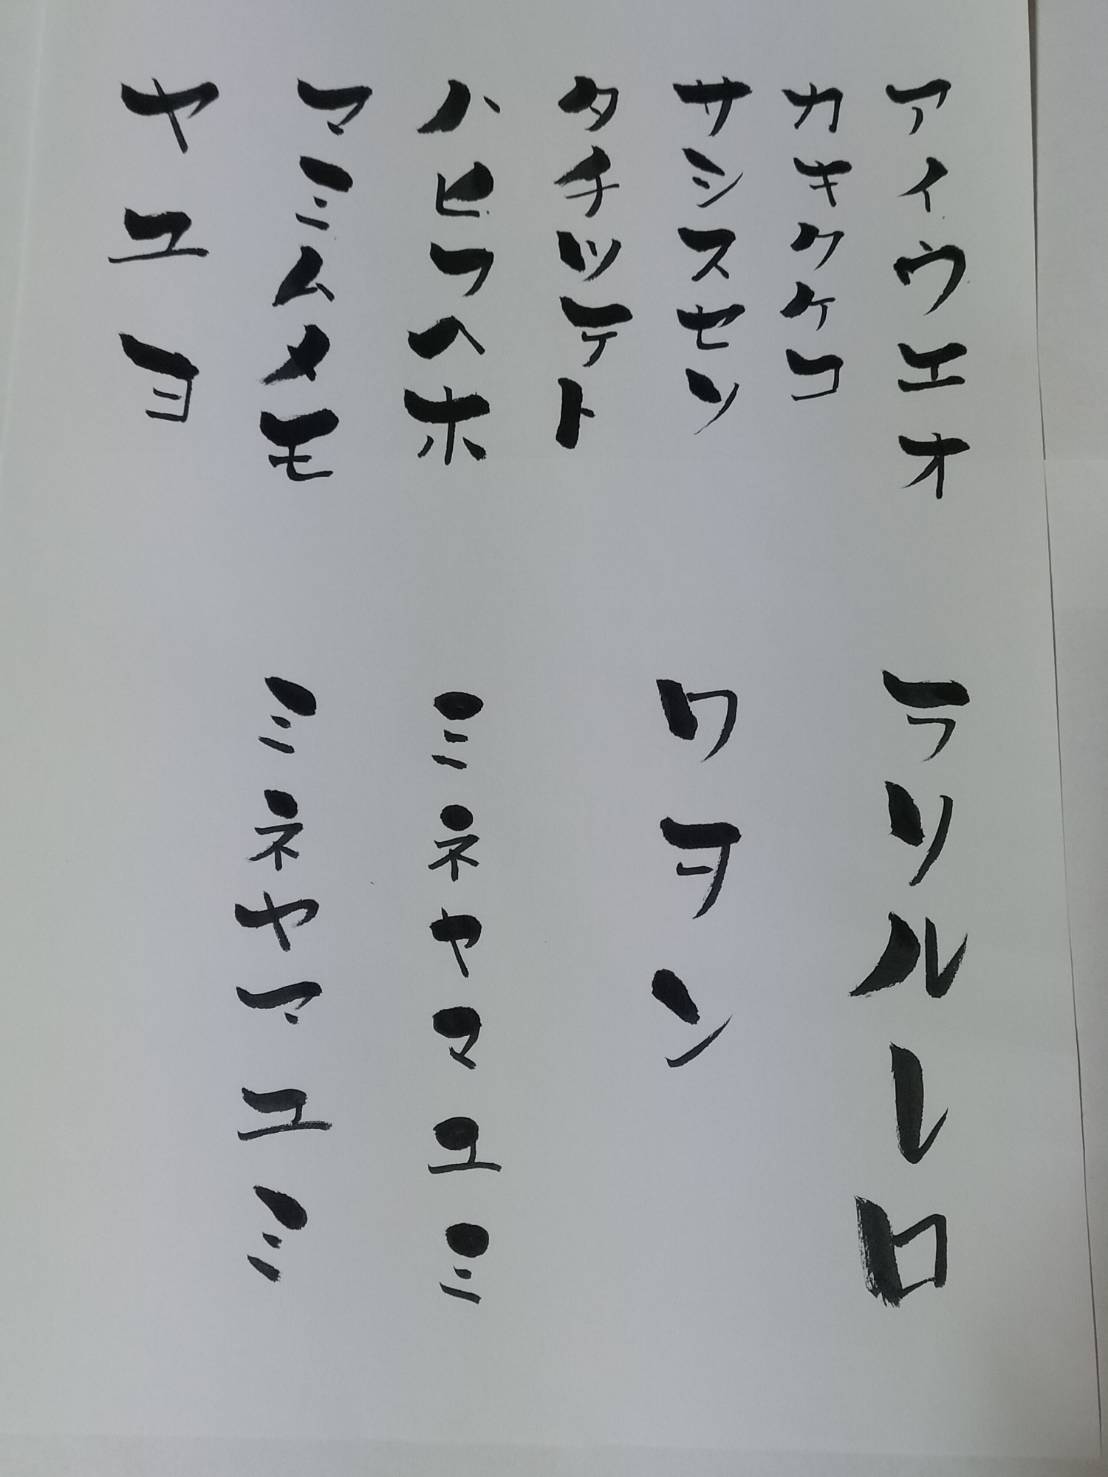 アイウエオ
カキクケコ
サシスセソ
タチツテト
ハヒフヘホ
マミムメモ
ヤユヨ
ラリルレロ
ワヲン
ミネヤマユミ
ミネヤマユミ